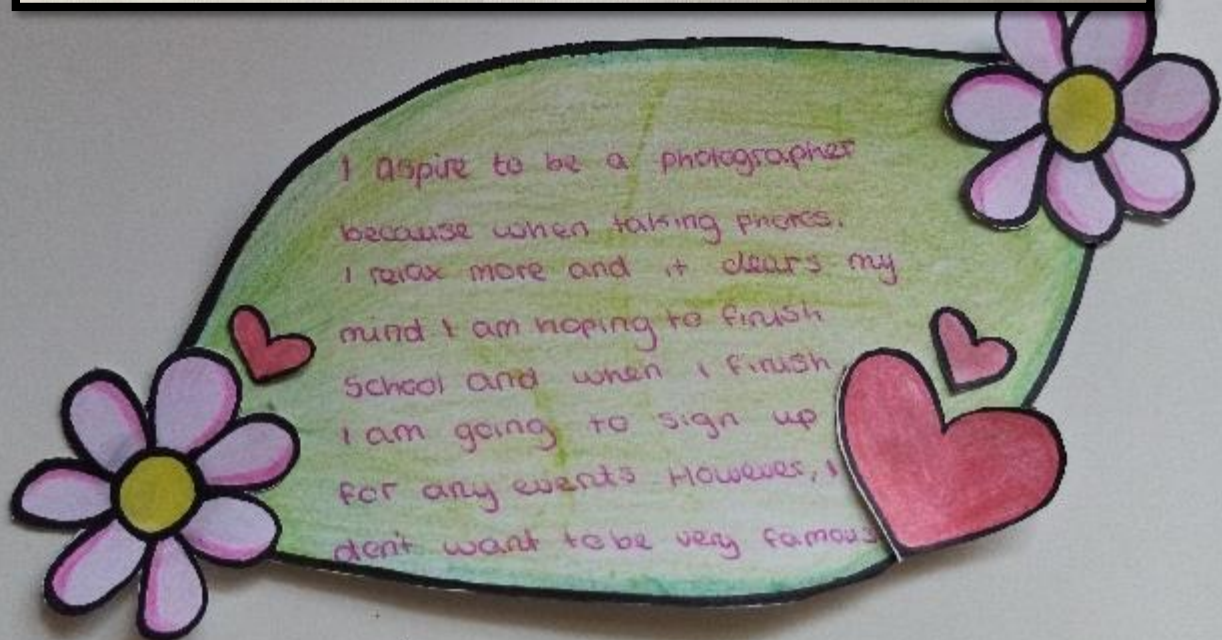 I aspire to be a photographer
because when taking photos.
I relax more and it clears my
mind I am hoping to finish
School and when I finish
I am going to sign up
for any events However, I
don't want to be very famous